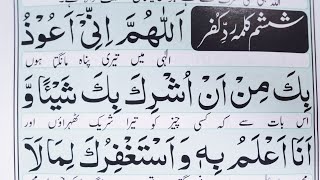 ششم کلمہ ردِّ کفر
اَللّٰهُمَّ اِنِّیْۤ اَعُوْذُ
الٰہی میں تیری پناہ مانگتا ہوں
بِكَ مِنْ اَنْ اُشْرِكَ بِكَ شَیْئًا وَّ
اس بات سے کہ کسی چیز کو تیرا شریک ٹھہراؤں اور
اَنَا اَعْلَمُ بِهٖ وَ اَسْتَغْفِرُكَ لِمَا لَاۤ